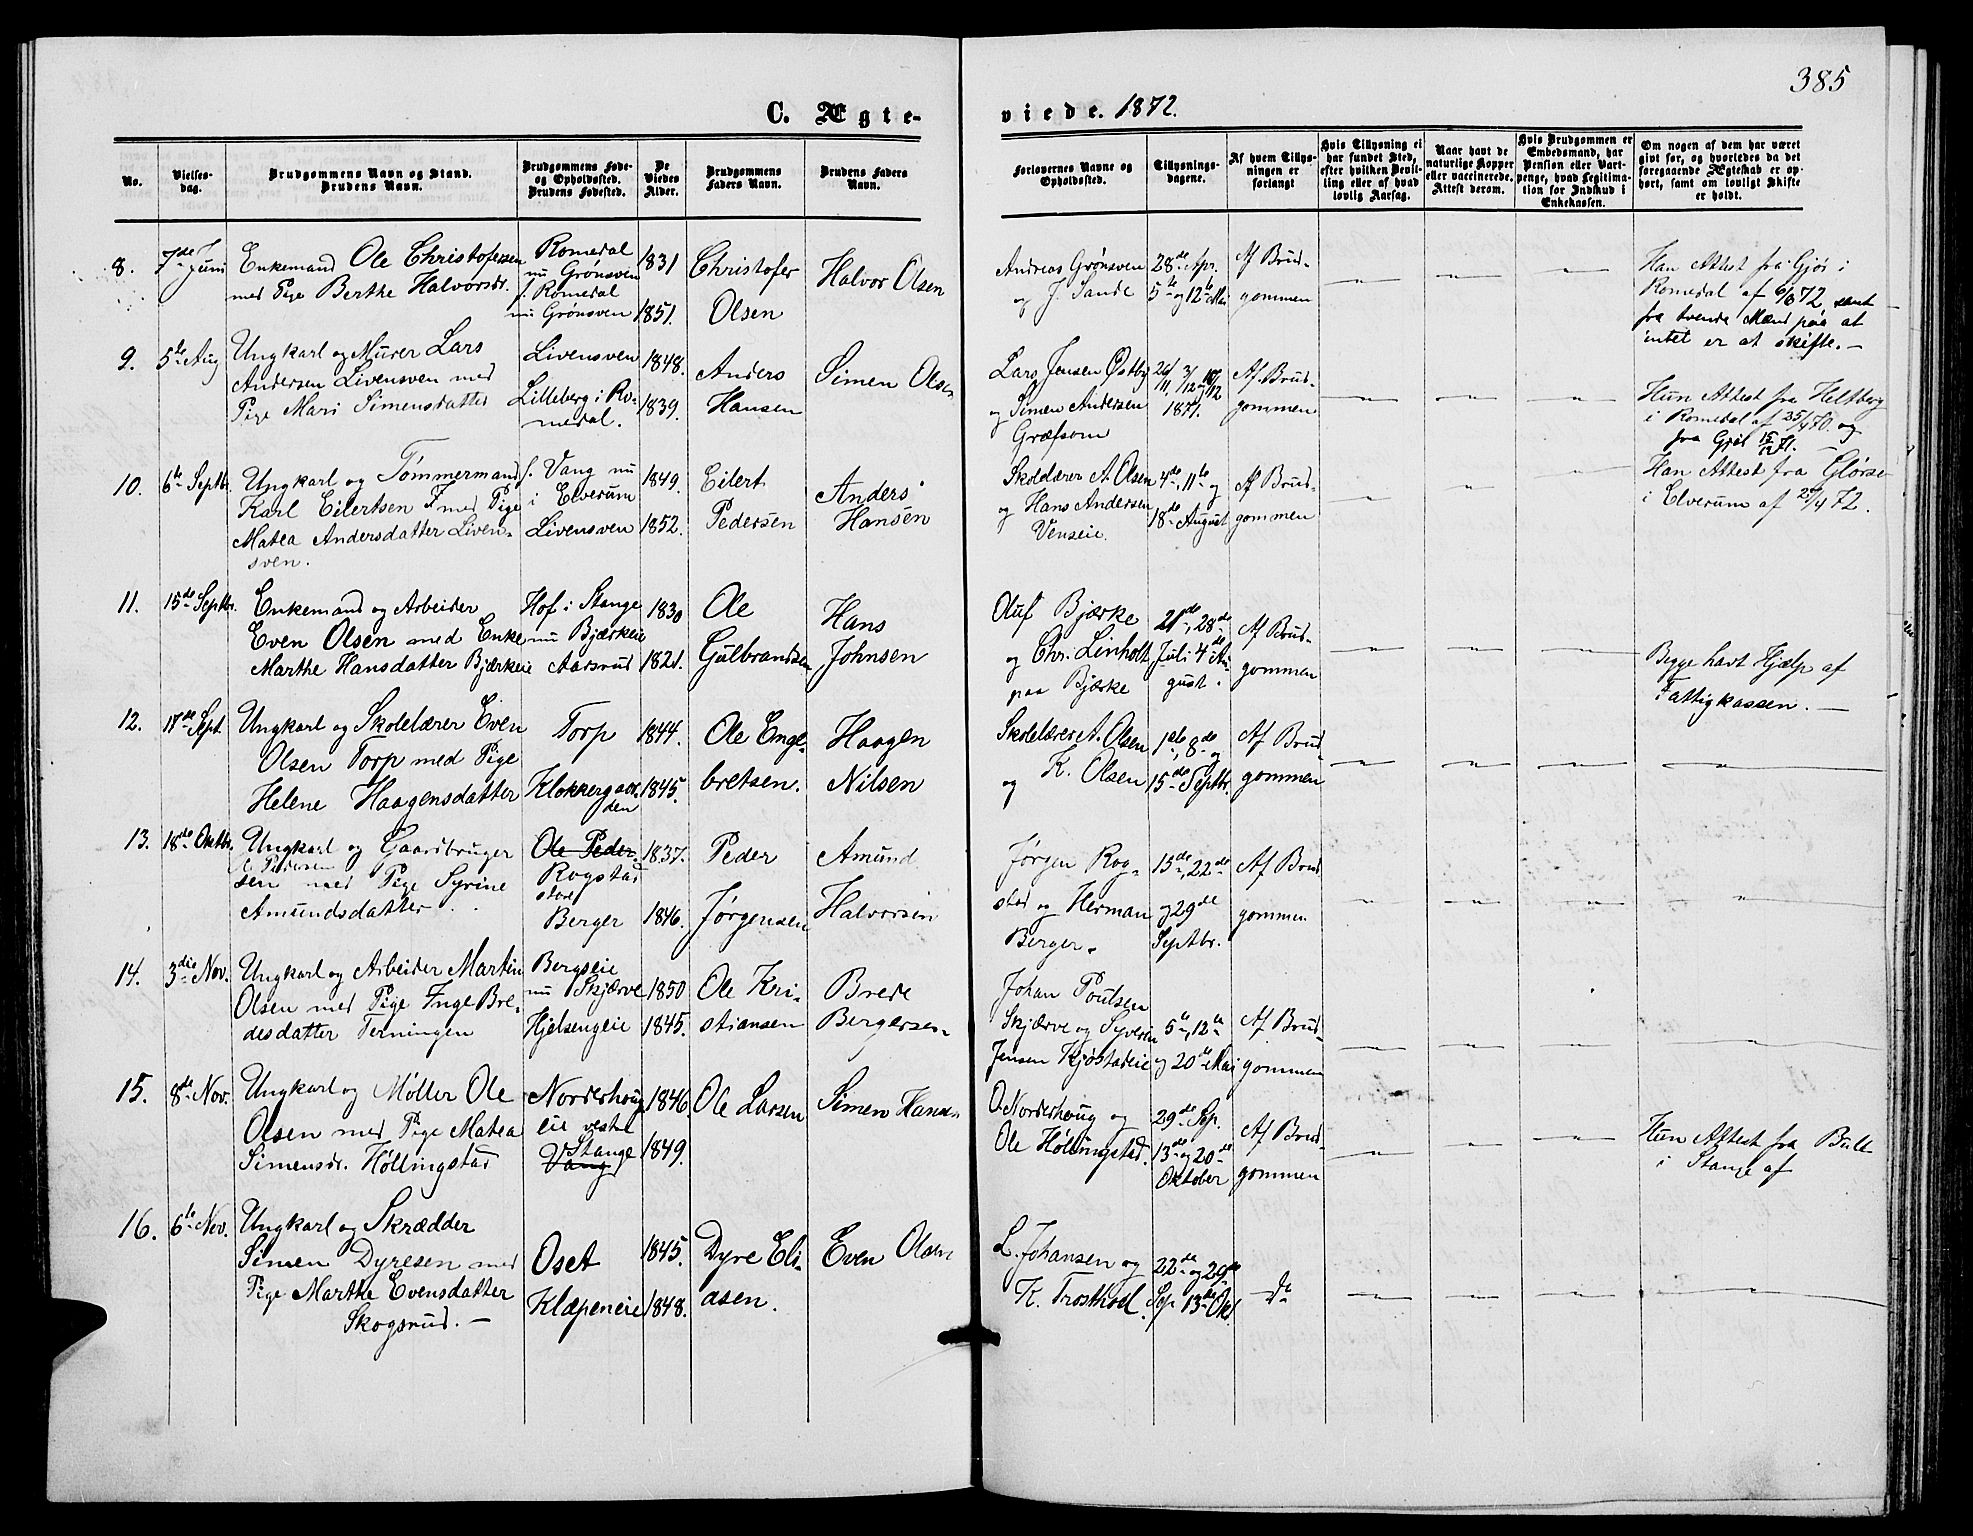 385
C. Ægte-
viede. 1872.
No.
Vielses-
dag.
Brudgommens Navn og Stand.
Brudens Navn.
Brudgommens Føde-
og Opholdssted.
Brudens Fødested.
De
Viedes
Alder.
Brudgommens
Faders Navn.
Brudens Faders
Navn.
Forlovernes Navne og
Opholdssted.
Tillysnings-
dagene.
Af hvem Tillys-
ningen er
forlangt
Hvis Tillysning ei
har fundet Sted,
efter hvilken Bevil-
ling eller af hvad
lovlig Aarsag.
Naar havt de
naturlige Kopper
eller vaccinerede.
Attest derom.
Hvis Brudgommen er
Embedsmand, har
Pension eller Vart-
penge, hvad Legitima-
tion for Indskud i
Enkekassen.
Om nogen af dem har været
gift før, og hvorledes da det
foregaaende Ægteskab er op-
hørt, samt om lovligt Skifte
er holdt.
8.
7de Juni
Enkemand Ole Christofersen
med Pige Berthe Halvorsdr.
Romedal
nu Grønsven
f. Romedal
nu Grønsven
1831
1851.
Christofer
Olsen
Halvor Olsen
Andreas Grønsven
og J. Sande
28de Apr.
5te og 12te Mai
Af Brud-
gommen
Han Attest fra Gjør i
Romedal af 6/6 72 samt
fra tvende Mænd paa at
intet er at skifte. —
9.
5te Aug
Ungkarl og Murer Lars
Andersen Livensven med
Pige Mari Simensdatter
Livensven
Lilleberg i Ro-
medal.
1848.
1839.
Anders
Hansen
Simen Olsen
Lars Jensen Østby
og Simen Andersen
Græfsom
26/11, 3/12 og 10/12
1871.
Af Brud-
gommen
Hun Attest fra Heltberg
i Romedal af 25/4 70. og
fra Gjøl 15/12 71. —
10.
6te Septbr.
Ungkarl og Tømmermand
Karl Eilertsen F med Pige
Matea Andersdatter Liven-
sven.
f. Vang nu
i Elverum
Livensven
1849.
1852.
Eilert
Pedersen
Anders
Hansen
Skolelærer A. Olsen
og Hans Andersen
Venseie.
4de, 11te og
18de August
Af Brud-
gommen
Han Attest fra Glørse
i Elverum af 28/4 72.
11.
15de Septbr.
Enkemand og Arbeider
Even Olsen med Enke
Marthe Hansdatter Bjærkeie
Hof i Stange
nu Bjærkeie
Aarsrud
1830
1821.
Ole
Gulbrandsen
Hans
Johnsen
Oluf Bjærke
og Chr. Linholt
paa Bjærke
21de, 28de
Juli 4de Au-
gust.
Af Brud-
gommen
Begge havt Hjælp af
Fattigkassen. —
12.
17de Sept.
Ungkarl og Skolelærer Even
Olsen Torp med Pige
Helene Haagensdatter
Torp
Klokkergaar
den
1844.
1845.
Ole Enge-
bretsen.
Haagen
Nilsen
Skolelærer A. Olsen
og K. Olsen
1ste, 8de og
15de Septbr.
Af Brud
gommen
13.
18de Oktbr.
Ungkarl og Gaardbruger
O. Pedersen
sen med Pige Syrine
Amundsdatter
Ole Peder-
Rogstad
store
Berger
1837.
1846.
Peder
Jørgensen
Amund
Halvorsen
Jørgen Rog-
stad og Herman
Berger.
15de, 22de
og 29de
Septbr.
Af Brud
gommen
14.
3die Nov.
Ungkarl og Arbeider Martin
Olsen med Pige Inge Bre-
desdatter Terningen
Bergseie
nu Skjærve
Hjelsengeie
1850
1845.
Ole Kri-
stiansen
Brede
Bergersen
Johan Poulsen
Skjærve og Syverin
Jensen Kjøstadeie
5te, 12te
og 20de Mai
Af Brud-
gommen
15.
8de Nov.
Ungkarl og Møller Ole
Olsen med Pige Matea
Simensdr. Höllingstad
Norderhoug
eie vestre
Stange
Vang
1846
1849.
Ole Larsen
Simen Hansen
O. Norderhoug og
Ole Höllingstad.
29de Sep.
13de og 20de
Oktober
Af Brud-
gommen
Hun Attest fra Bull
i Stange af
16.
6te Nov.
Ungkarl og Skrædder
Simen Dyresen med
Pige Marthe Evensdatter
Skogsrud. —
Oset
Klæpeneie
1845.
1848.
Dyre Eli-
asen.
Even Olsen
L. Johansen og
K. Trosthoel.
22de og 29de
Sep. 13de Okt.
do